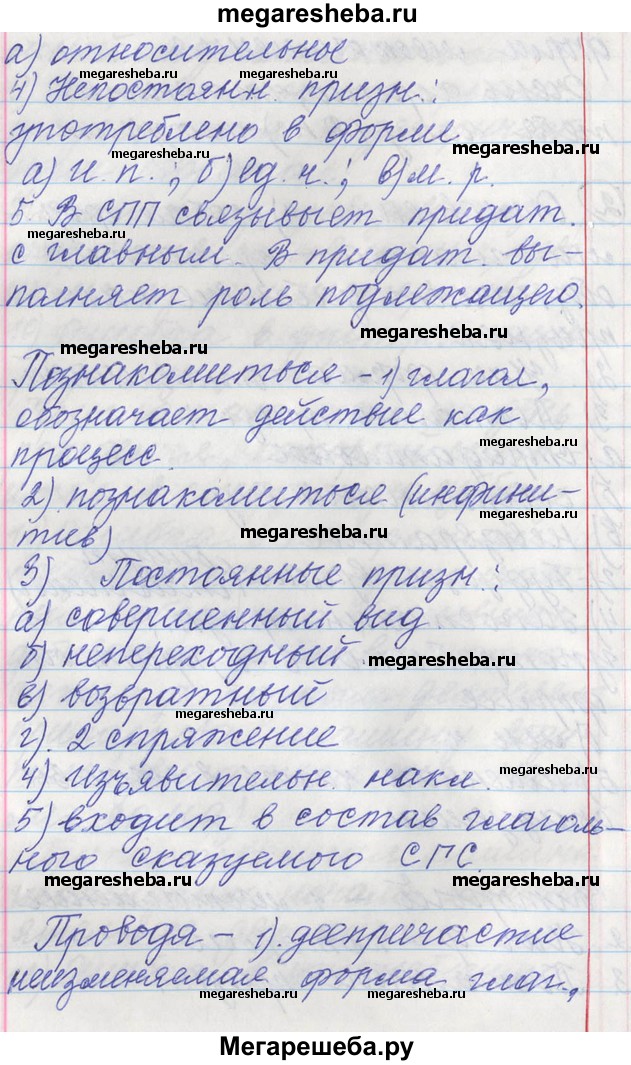 megaresheba.ru
а) относительное
megaresheba.ru
4) Непостоянн. призн.:
megaresheba.ru
употреблено в форме
megaresheba.ru megaresheba.ru
а) И. п.; б) ед. ч.; в) м. р.
5. В СПП связывыет придат.
megaresheba.ru
с главным. В придат. вы-
полняет роль подлежащего.
megaresheba.ru
megaresheba.ru
Познакомиться – 1) глагол,
обозначает действие как
megaresheba.ru
процесс.
2) познакомиться (инфини-
megaresheba.ru
тив)
megaresheba.ru
3) Постоянные призн.:
а) совершенный вид.
б) непереходный
megaresheba.ru
в) возвратный
megaresheba.ru
г). 2 спряжение
4) изъявительн. накл.
megaresheba.ru
5) входит в состав глаголь-
ного сказуемого СГС.
megaresheba.ru megaresheba.ru
Проводя – 1). деепричастие
неизменяемая форма глаг.,
megaresheba.ru megaresheba.ru
Мегарешеба.ру